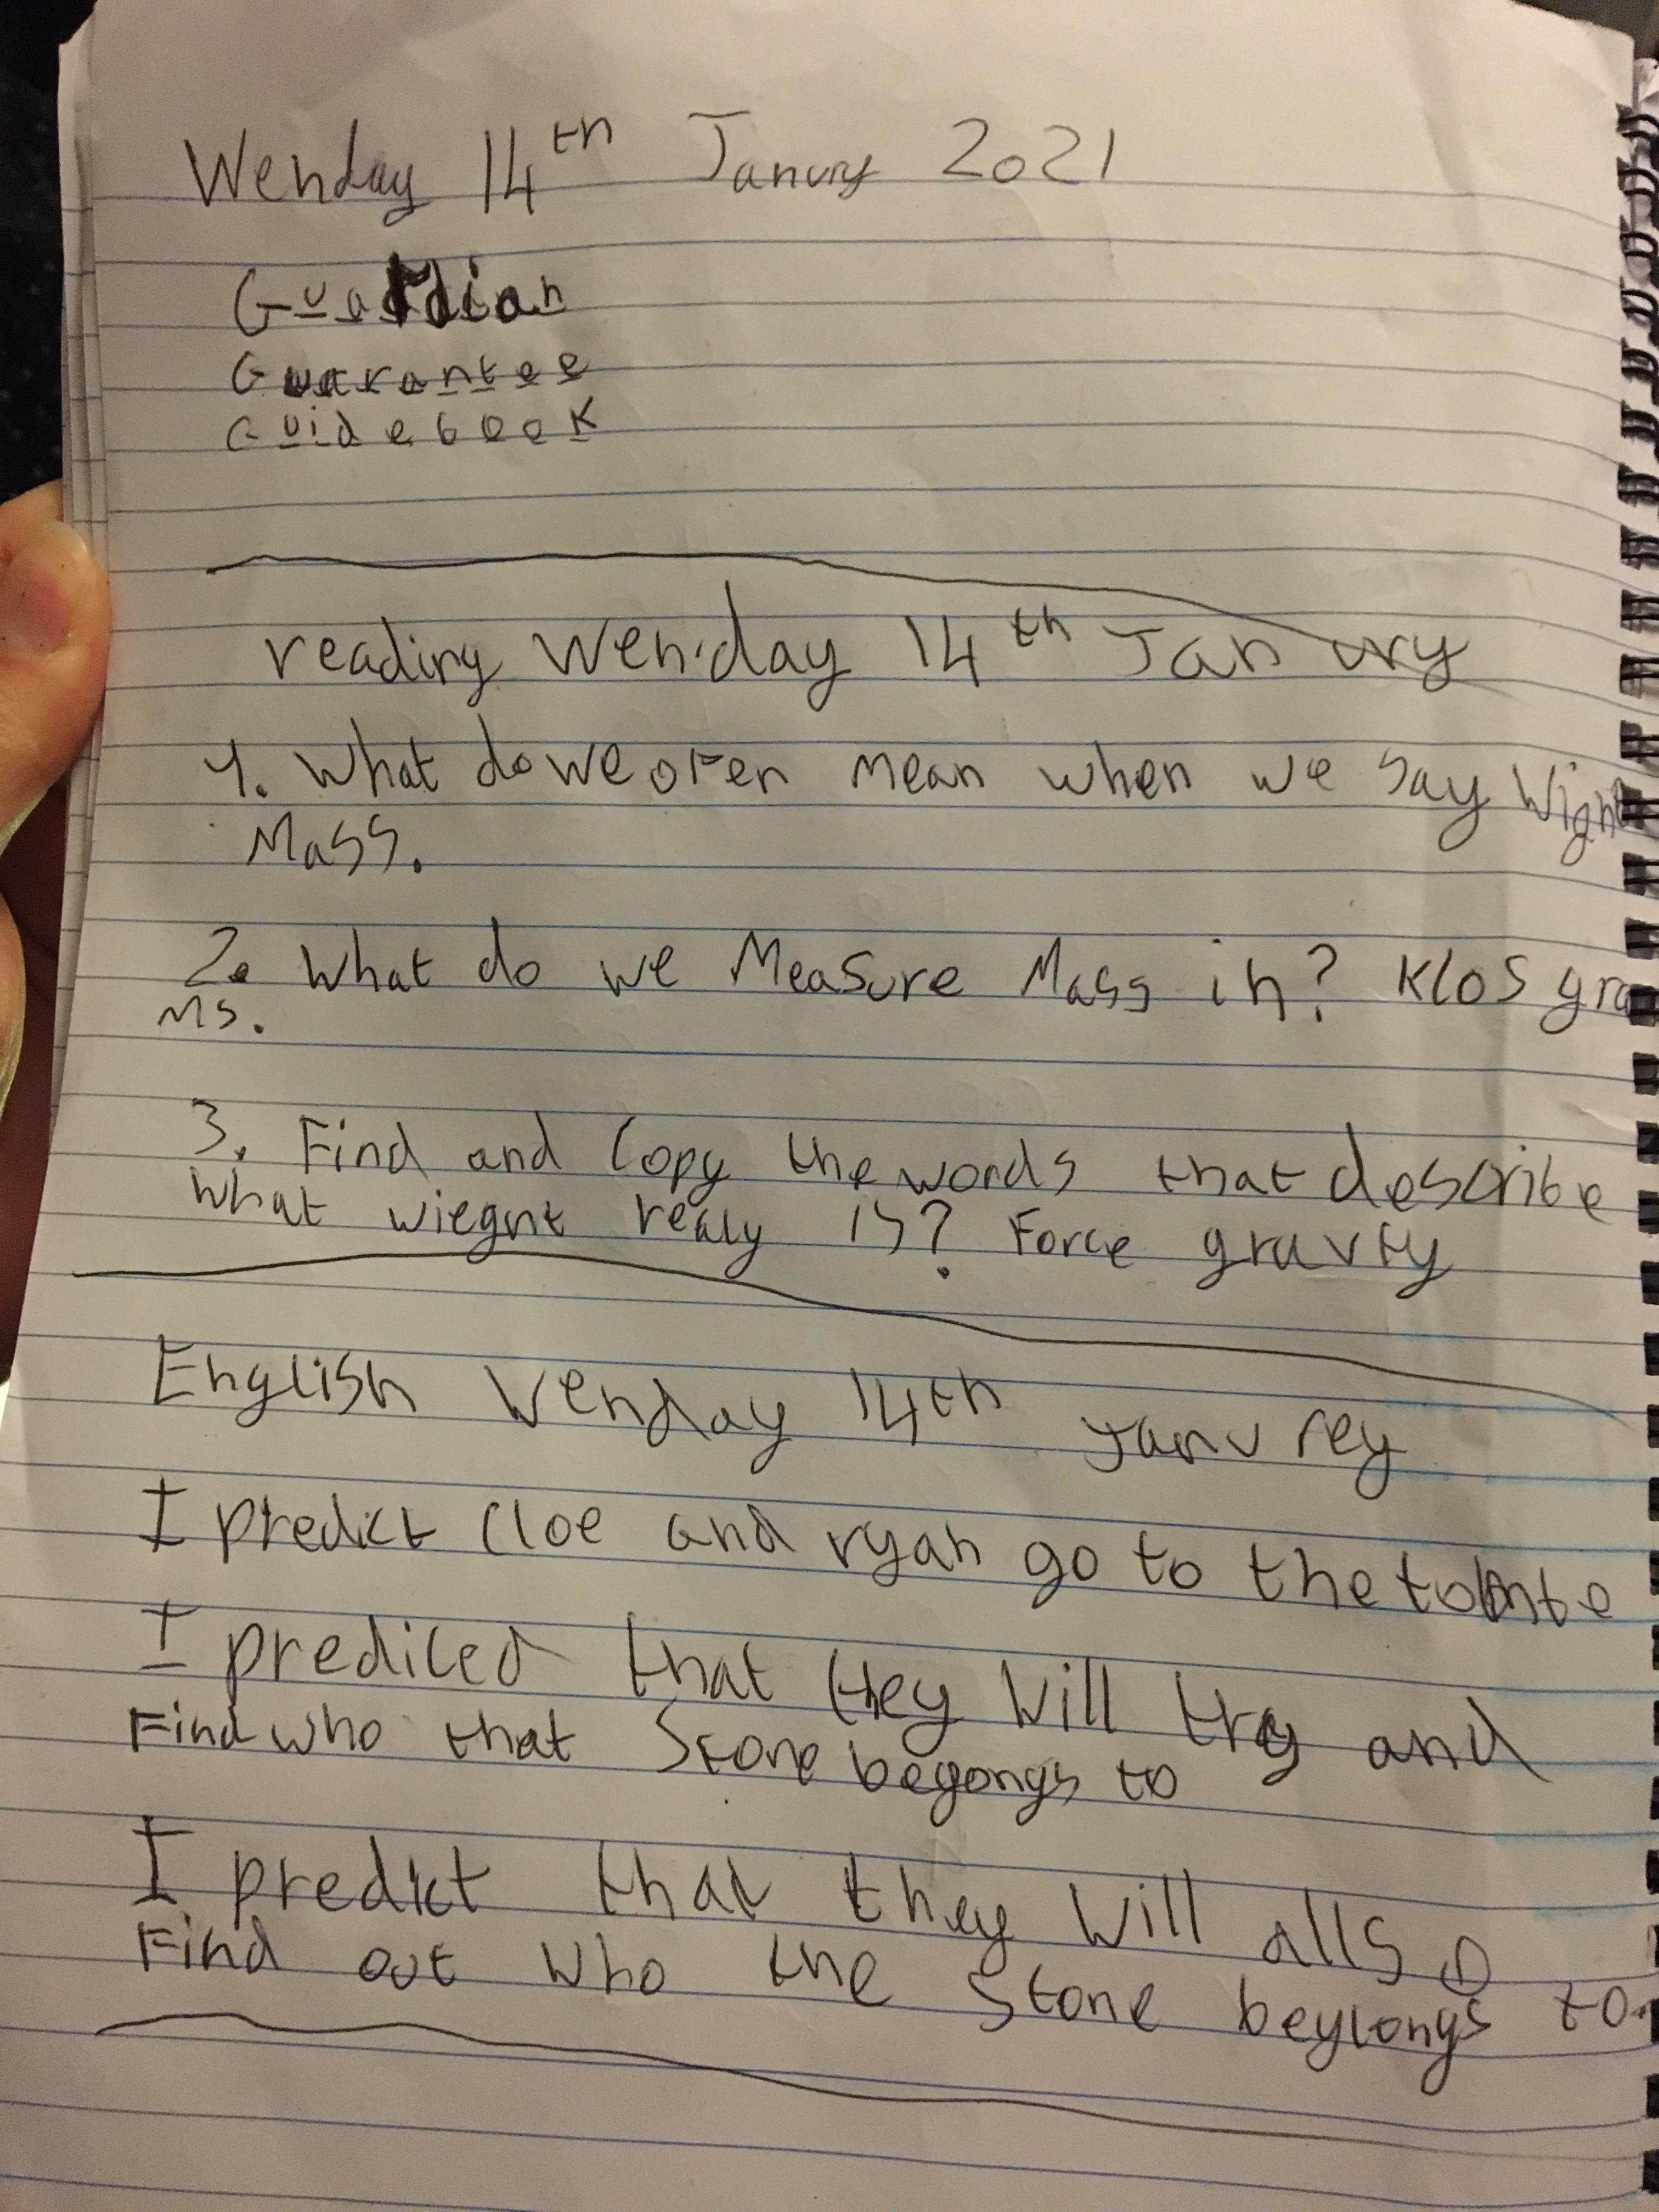 Wenday 14th Janury 2021
Guardian
Guarantee
Guidebook
reading Wenday 14th Janury
1. What do we ofen mean when we say Wight
Mass.
2. What do we Measure Mass in? Klos gra
Ms.
3. Find and Copy the words that describe
what wieght realy is? Force gravty
English Wenday 14th Janurey
I predict Cloe and ryan go to the
I prediced that they Will try and
Find who that Stone begongs to
I predict that they Will allso
Find out who the Stone beylongs to.